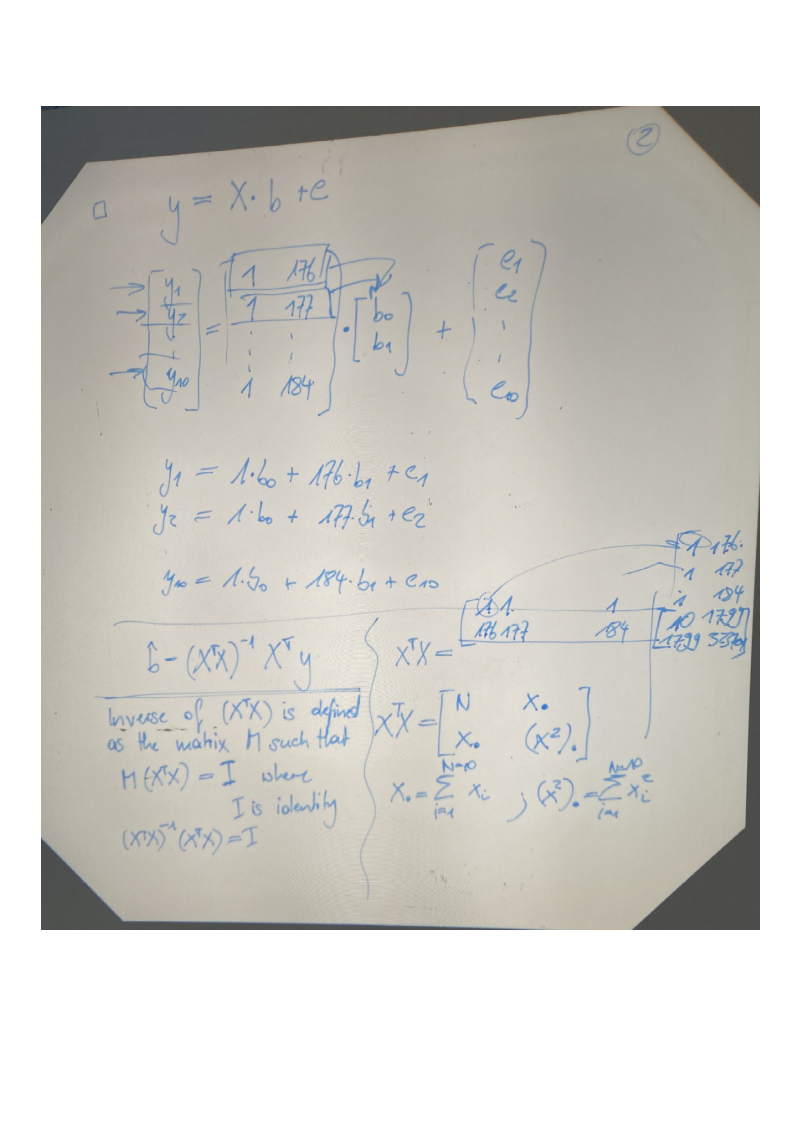 2
□ y = X · b + e
[y1 y2 ⋮ y10] = [1 176 1 177 ⋮ ⋮ 1 184] · [b0 b1] + [e1 e2 ⋮ e10]
y1 = 1·b0 + 176·b1 + e1
y2 = 1·b0 + 177·b1 + e2
y10 = 1·b0 + 184·b1 + e10
b̂ - (XᵀX)⁻¹ Xᵀ y
Inverse of (XᵀX) is defined
as the matrix M such that
M(XᵀX) = I where
I is identity
(XᵀX)⁻¹ (XᵀX) = I
1 176
1 177
1 184
XᵀX = [1 1 1
176 177 184]
[10 1799
1799]
XᵀX = [N x•
x• (x²)•]
x• = ∑ᵢ₌₁ᴺ⁼¹⁰ xᵢ ; (x²)• = ∑ᵢ₌₁ᴺ⁼¹⁰ xᵢ²